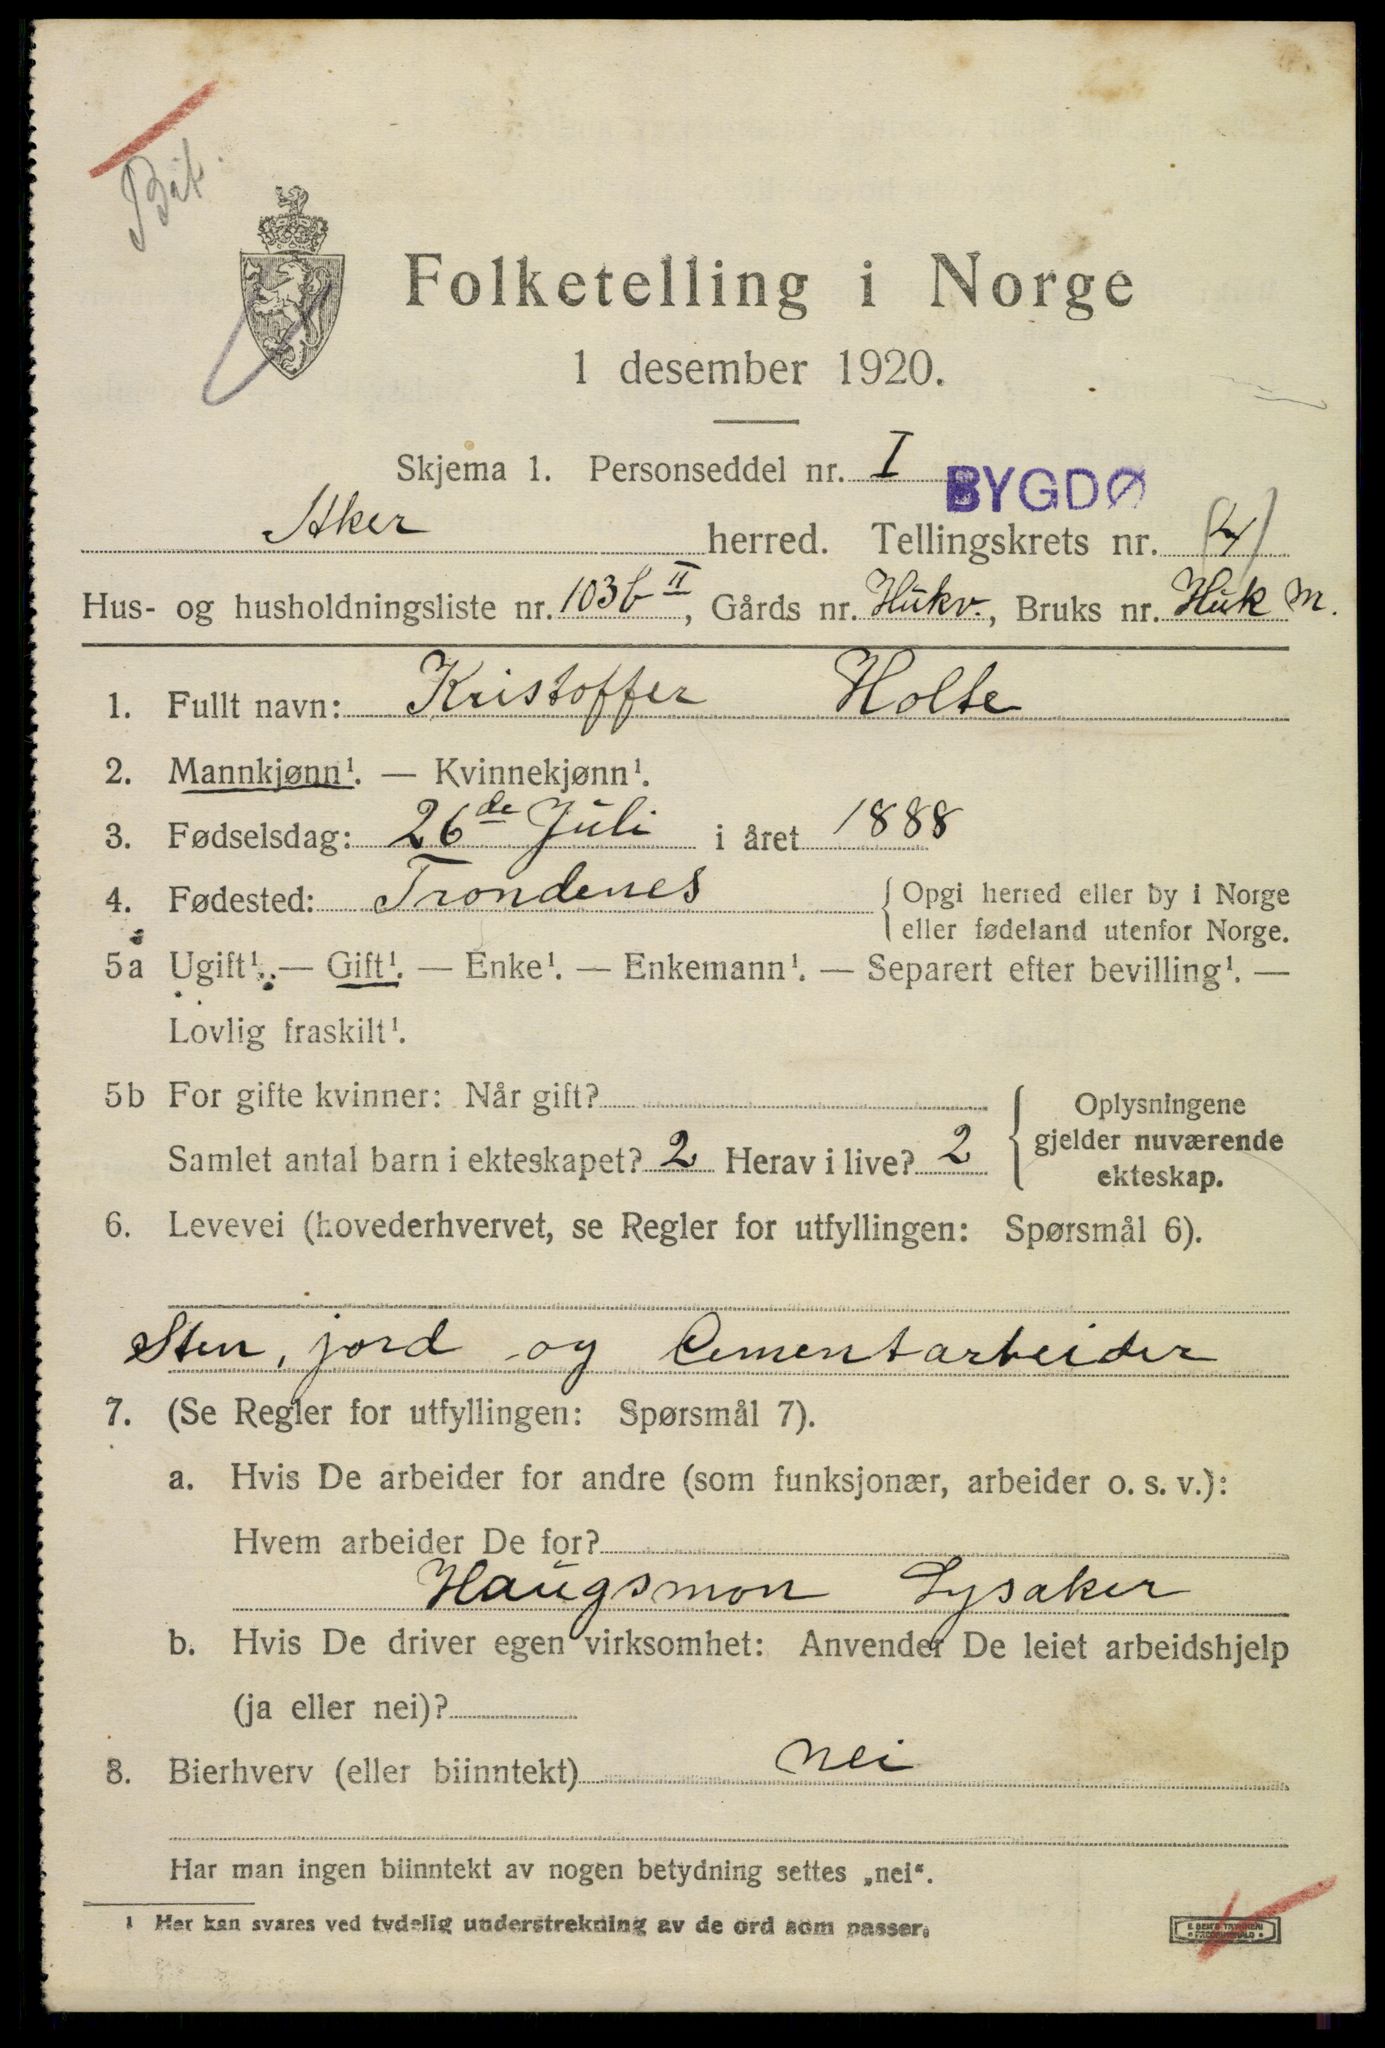 Bik.
Folketelling i Norge
1 desember 1920.
Skjema 1. Personseddel nr. I
BYGDØ
Aker herred. Tellingskrets nr. (4)
Hus- og husholdningsliste nr. 103b II, Gårds nr. Hukv., Bruks nr. Huk M.
1. Fullt navn: Kristoffer Holte
2. Mannkjønn¹. — Kvinnekjønn¹.
3. Fødselsdag: 26de Juli i året 1888
4. Fødested: Trondenes {Opgi herred eller by i Norge
eller fødeland utenfor Norge.
5a Ugift¹. — Gift¹. — Enke¹. — Enkemann¹. — Separert efter bevilling¹. —
Lovlig fraskilt¹.
5b For gifte kvinner: Når gift? { Oplysningene
gjelder nuværende
Samlet antal barn i ekteskapet? 2 Herav i live? 2
ekteskap.
6. Levevei (hovederhvervet, se Regler for utfyllingen: Spørsmål 6).
Sten, jord og Cementarbeider
7. (Se Regler for utfyllingen: Spørsmål 7).
a. Hvis De arbeider for andre (som funksjonær, arbeider o. s. v.):
Hvem arbeider De for?
Haugsmon Lysaker
b. Hvis De driver egen virksomhet: Anvender De leiet arbeidshjelp
(ja eller nei)?
8. Bierhverv (eller biinntekt) nei
Har man ingen biinntekt av nogen betydning settes „nei“.
1 Her kan svares ved tydelig understrekning av de ord som passer.